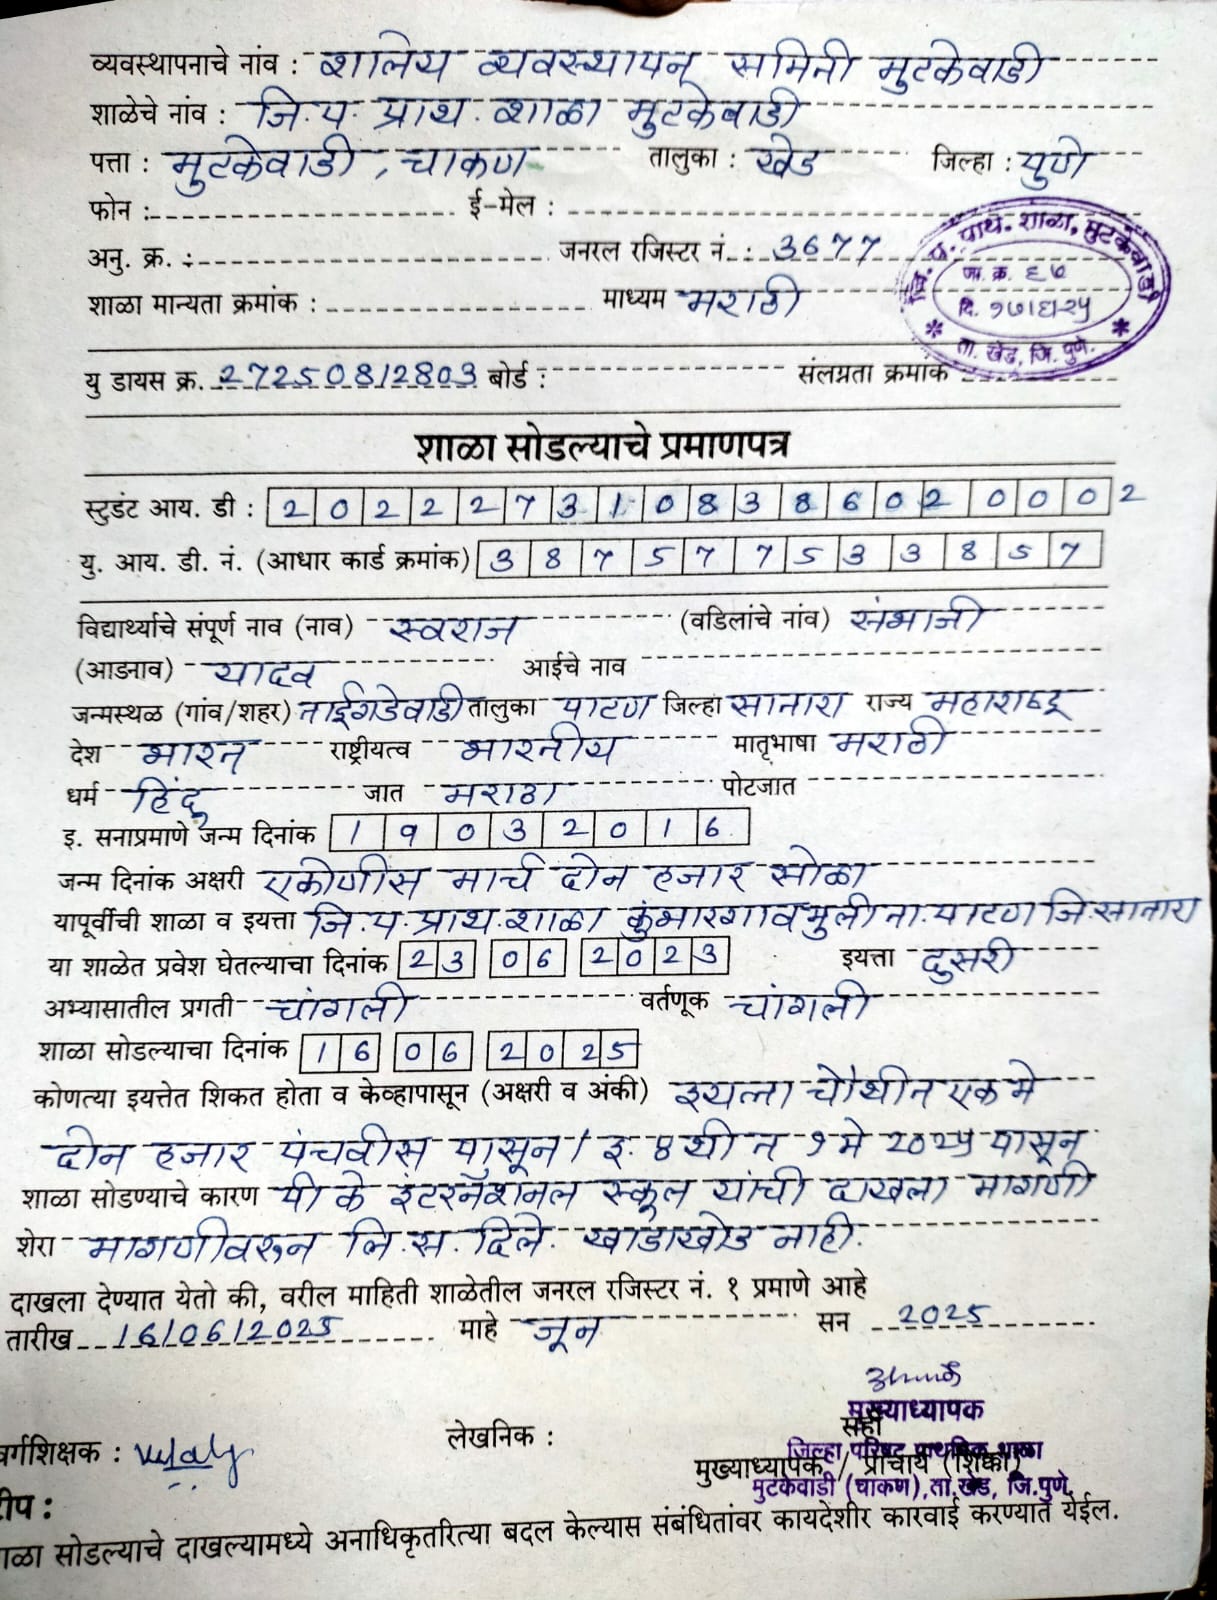 व्यवस्थापनाचे नांव : शालेय व्यवस्थापन समिती मुटकेवाडी
शाळेचे नांव : जि.प. प्राथ. शाळा मुटकेवाडी
पत्ता : मुटकेवाडी, चाकण तालुका : खेड जिल्हा : पुणे
फोन : ई-मेल :
अनु. क्र. : जनरल रजिस्टर नं. : 3677
शाळा मान्यता क्रमांक : माध्यम मराठी
जि. प. प्राथ. शाळा, मुटकेवाडी
जा. क्र. ६७
दि. १७/६/२५
ता. खेड, जि. पुणे.
यु डायस क्र. 27250812803 बोर्ड : संलग्नता क्रमांक
शाळा सोडल्याचे प्रमाणपत्र
स्टुडंट आय. डी : 2022273108386020002
यु. आय. डी. नं. (आधार कार्ड क्रमांक) 387577533857
विद्यार्थ्याचे संपूर्ण नाव (नाव) स्वराज (वडिलांचे नांव) संभाजी
(आडनाव) यादव आईचे नाव
जन्मस्थळ (गांव/शहर) नाईगडेवाडी तालुका पाटण जिल्हा सातारा राज्य महाराष्ट्र
देश भारत राष्ट्रीयत्व भारतीय मातृभाषा मराठी
धर्म हिंदु जात मराठा पोटजात
इ. सनाप्रमाणे जन्म दिनांक 19032016
जन्म दिनांक अक्षरी एकोणीस मार्च दोन हजार सोळा
यापूर्वीची शाळा व इयत्ता जि.प. प्राथ. शाळा कुंभारगाव मुली ता. पाटण जि. सातारा
या शाळेत प्रवेश घेतल्याचा दिनांक 23 06 2023 इयत्ता दुसरी
अभ्यासातील प्रगती चांगली वर्तणूक चांगली
शाळा सोडल्याचा दिनांक 16 06 2025
कोणत्या इयत्तेत शिकत होता व केव्हापासून (अक्षरी व अंकी) इयत्ता चौथीत एक मे
दोन हजार पंचवीस पासून / इ. ४ थी त १ मे २०२५ पासून
शाळा सोडण्याचे कारण पी के इंटरनॅशनल स्कूल यांची दाखला मागणी
शेरा मागणीवरून लि.स. दिले. खाडाखोड नाही.
दाखला देण्यात येतो की, वरील माहिती शाळेतील जनरल रजिस्टर नं. १ प्रमाणे आहे
तारीख 16/06/2025 माहे जून सन 2025
मुख्याध्यापक
सही
वर्गशिक्षक : लेखनिक :
जिल्हा परिषद प्राथमिक शाळा
मुख्याध्यापक / प्राचार्य (शिक्का)
मुटकेवाडी (चाकण), ता. खेड, जि. पुणे.
टीप :
शाळा सोडल्याचे दाखल्यामध्ये अनाधिकृतरित्या बदल केल्यास संबंधितांवर कायदेशीर कारवाई करण्यात येईल.